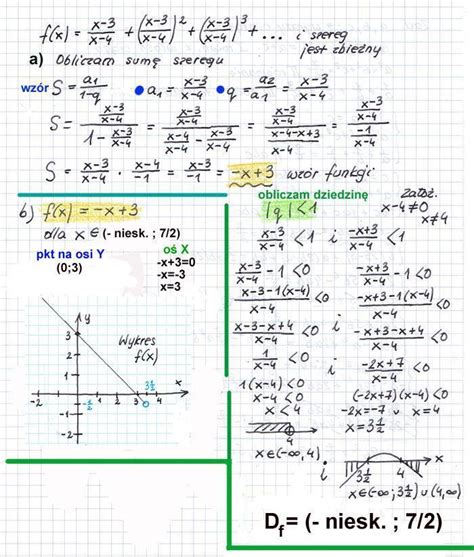 f(x) = x-3/x-4 + (x-3/x-4)² + (x-3/x-4)³ + ... i szereg
jest zbieżny
a) Obliczam sumę szeregu
wzór S = a₁/1-q • a₁ = x-3/x-4 • q = a₂/a₁ = x-3/x-4
S = (x-3/x-4)/(1 - x-3/x-4) = (x-3/x-4)/(x-4/x-4 - x-3/x-4) = (x-3/x-4)/(x-4-x+3/x-4) = (x-3/x-4)/(-1/x-4)
S = x-3/x-4 · x-4/-1 = x-3/-1 = -x+3 wzór funkcji
b) f(x) = -x+3
dla x ∈ (- niesk. ; 7/2)
pkt na osi Y
(0;3)
oś X
-x+3=0
-x=-3
x=3
y
Wykres
f(x)
3
2
1
-1
-2
-2 -1 1 2 3 4 x
-½
3½
obliczam dziedzinę
|q| < 1
założ.
x-4≠0
x≠4
x-3/x-4 < 1 i -x+3/x-4 < 1
x-3/x-4 - 1 < 0 -x+3/x-4 - 1 < 0
x-3-1(x-4)/x-4 < 0 i -x+3-1(x-4)/x-4 < 0
x-3-x+4/x-4 < 0 i -x+3-x+4/x-4 < 0
1/x-4 < 0 i -2x+7/x-4 < 0
1(x-4) < 0 (-2x+7)(x-4) < 0
x-4 < 0 -2x=-7 ∪ x=4
x < 4 x=3½
4
x∈(-∞,4) i
3½ 4 x
x∈(-∞; 3½) ∪ (4,∞)
Df = (- niesk. ; 7/2)